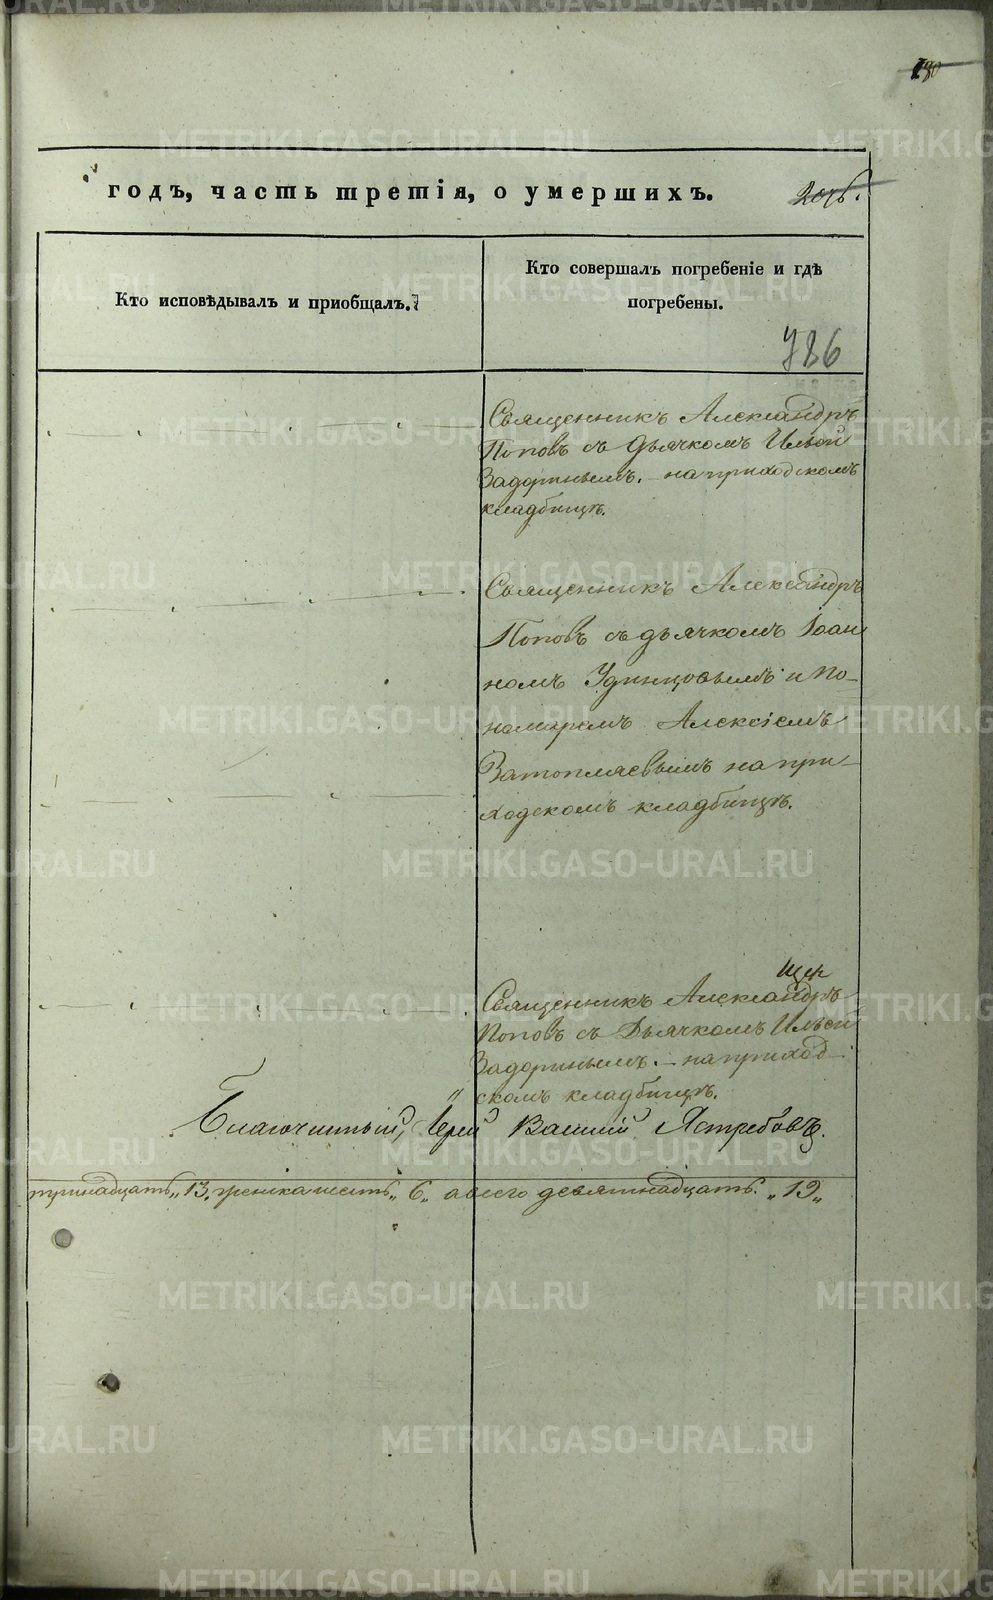 180
годъ, часть третія, о умершихъ.
Кто исповѣдывалъ и пріобщалъ.
Кто совершалъ погребеніе и гдѣ
погребены.
786
Священникъ Александръ
Поповъ съ дьячкомъ Ильей
Задоринымъ. - на приходскомъ
кладбищѣ.
Священникъ Александръ
Поповъ съ дьячкомъ Іоан
номъ Удинцовымъ и по-
номаремъ Алексіемъ
Затопляевымъ на при-
ходскомъ кладбищѣ.
Священникъ Александръ
Поповъ съ Дьячкомъ Ильей
Задоринымъ. - на приход-
скомъ кладбищѣ.
Благочинный, Іерей Василій Ястребовъ.
тринадцать „13„ женска шесть „6„ а всего девятнадцать. „19„
METRIKI.GASO-URAL.RU